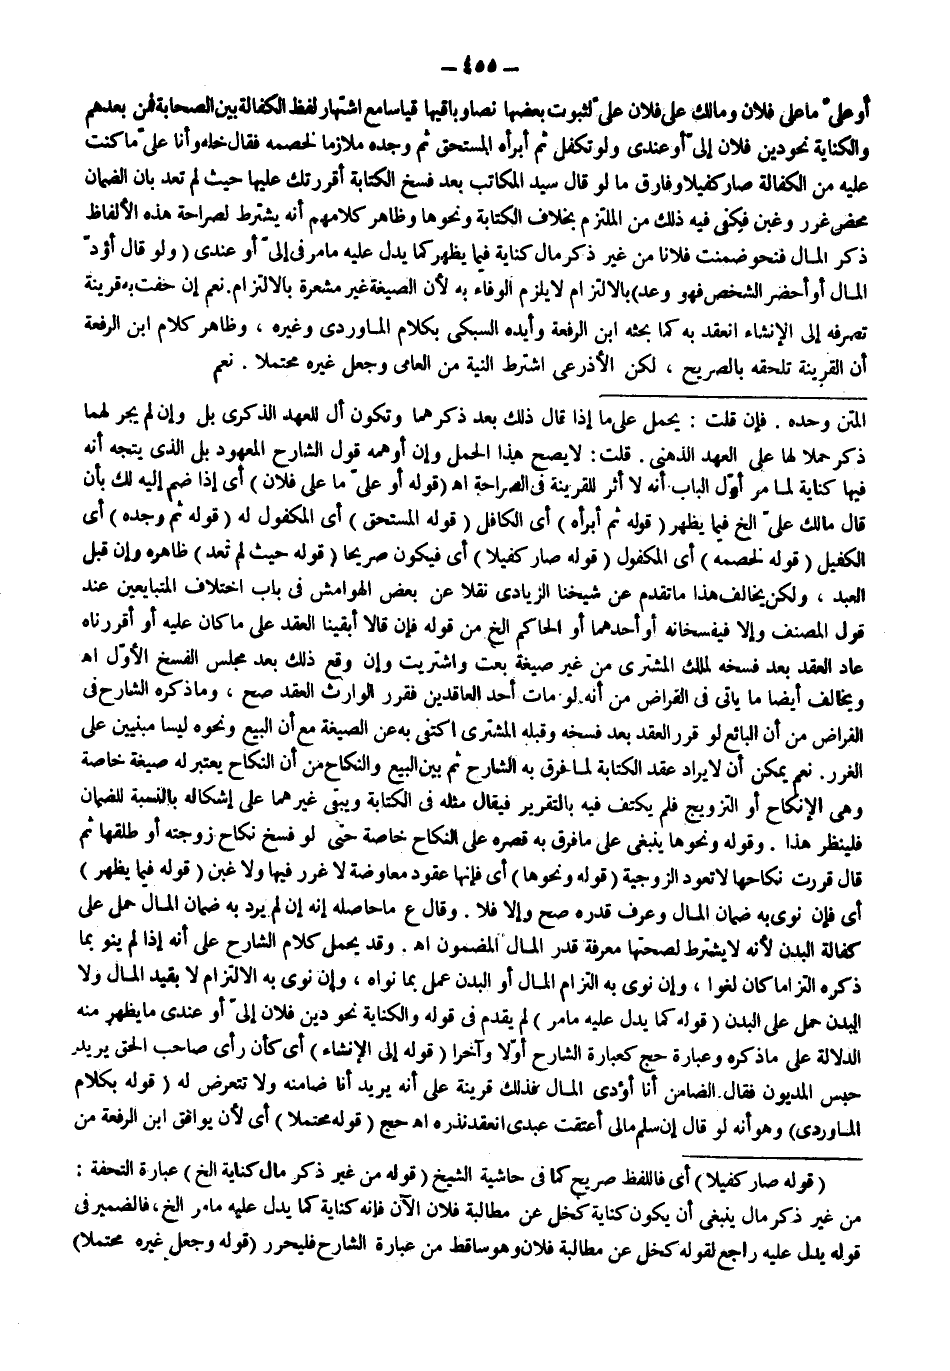 — ٤٥٥ —
أو علىّ ما على فلان ومالك على فلان علىّ لثبوت بعضها نصا وباقيها قياسا مع اشتهار لفظ الكفالة بين الصحابة فمن بعدهم
والكناية نحو دين فلان إلىّ أو عندى ولو تكفل ثم أبرأه المستحق ثم وجده ملازما لخصمه فقال خله وأنا علىّ ما كنت
عليه من الكفالة صار كفيلا وفارق ما لو قال سيد المكاتب بعد فسخ الكتابة أقررتك عليها حيث لم تعد بان الضمان
محض غرر وغبن فيكفى فيه ذلك من الملتزم بخلاف الكتابة ونحوها وظاهر كلامهم أنه يشترط لصراحة هذه الألفاظ
ذكر المال فنحو ضمنت فلانا من غير ذكر مال كناية فيما يظهر كما يدل عليه مامر فى إلىّ أو عندى ( ولو قال أؤدّى
المال أو أحضر الشخص فهو وعد) بالالتزام لا يلزم الوفاء به لأن الصيغة غير مشعرة بالالتزام. نعم إن حفت به قرينة
تصرفه إلى الإنشاء انعقد به كما بحثه ابن الرفعة وأيده السبكى بكلام الماوردى وغيره ، وظاهر كلام ابن الرفعة
أن القرينة تلحقه بالصريح ، لكن الأذرعى اشترط النية من العامى وجعل غيره محتملا . نعم
المتن وحده . فإن قلت : يحمل على ما إذا قال ذلك بعد ذكرهما وتكون أل للعهد الذكرى بل وإن لم يجر لهما
ذكر حملا لها على العهد الذهنى . قلت : لا يصح هذا الحمل وإن أوهمه قول الشارح المعهود بل الذى يتجه أنه
فيها كناية لما مر أوّل الباب أنه لا أثر للقرينة فى الصراحة اه (قوله أو علىّ ما على فلان ) أى إذا ضم إليه لك بأن
قال مالك علىّ الخ فيما يظهر ( قوله ثم أبرأه ) أى الكافل ( قوله المستحق ) أى المكفول له ( قوله ثم وجده ) أى
الكفيل ( قوله لخصمه ) أى المكفول ( قوله صار كفيلا ) أى فيكون صريحا ( قوله حيث لم تعد ) ظاهره وإن قبل
العبد ، ولكن يخالف هذا ماتقدم عن شيخنا الزيادى نقلا عن بعض الهوامش فى باب اختلاف المتبايعين عند
قول المصنف وإلا فيفسخانه أو أحدهما أو الحاكم الخ من قوله فإن قالا أبقينا العقد على ما كان عليه أو أقررناه
عاد العقد بعد فسخه لملك المشترى من غير صيغة بعت واشتريت وإن وقع ذلك بعد مجلس الفسخ الأوّل اه
ويخالف أيضا ما يأتى فى القراض من أنه لو مات أحد العاقدين فقرر الوارث العقد صح ، وماذكره الشارح فى
القراض من أن البائع لو قرر العقد بعد فسخه وقبله المشترى اكتفى به عن الصيغة مع أن البيع ونحوه ليسا مبنيين على
الغرر. نعم يمكن أن لا يراد عقد الكتابة لما فرق به الشارح ثم بين البيع والنكاح من أن النكاح يعتبر له صيغة خاصة
وهى الإنكاح أو التزويج فلم يكتف فيه بالتقرير فيقال مثله فى الكتابة ويبقى غيرهما على إشكاله بالنسبة للضمان
فلينظر هذا . وقوله ونحوها ينبغى على مافرق به قصره على النكاح خاصة حتى لو فسخ نكاح زوجته أو طلقها ثم
قال قررت نكاحها لاتعود الزوجية ( قوله ونحوها ) أى فإنها عقود معاوضة لا غرر فيها ولا غبن ( قوله فيما يظهر )
أى فإن نوى به ضمان المال وعرف قدره صح وإلا فلا . وقال ع ماحاصله إنه إن لم يرد به ضمان المال حمل على
كفالة البدن لأنه لايشترط لصحتها معرفة قدر المال المضمون اه . وقد يحمل كلام الشارح على أنه إذا لم ينو بما
ذكره التزاما كان لغوا ، وإن نوى به التزام المال أو البدن عمل بما نواه ، وإن نوى به الالتزام لا بقيد المال ولا
البدن حمل على البدن ( قوله كما يدل عليه مامر ) لم يقدم فى قوله والكناية نحو دين فلان إلىّ أو عندى مايظهر منه
الدلالة على ماذكره وعبارة حج كعبارة الشارح أوّلا وآخرا ( قوله إلى الإنشاء ) أى كأن رأى صاحب الحق يريد
حبس المديون فقال الضامن أنا أؤدى المال فذلك قرينة على أنه يريد أنا ضامنه ولا تتعرض له ( قوله بكلام
الماوردى) وهو أنه لو قال إن سلم مالى أعتقت عبدى انعقد نذره اه حج ( قوله محتملا ) أى لأن يوافق ابن الرفعة من
( قوله صار كفيلا ) أى فاللفظ صريح كما فى حاشية الشيخ ( قوله من غير ذكر مال كناية الخ ) عبارة التحفة :
من غير ذكر مال ينبغى أن يكون كناية كخل عن مطالبة فلان الآن فإنه كناية كما يدل عليه مامر الخ ، فالضمير فى
قوله يدل عليه راجع لقوله كخل عن مطالبة فلان وهو ساقط من عبارة الشارح فليحرر (قوله وجعل غيره محتملا)